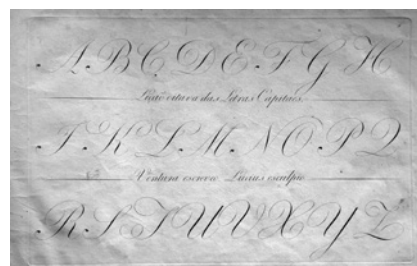 A.B.C.D.E.F.G.H
Liçaõ oitava das Letras Capitaes.
I.K.L.M.N.O.P.Q
Ventura escreveo. Lucius esculpio.
R.S.T.U.V.X.Y.Z